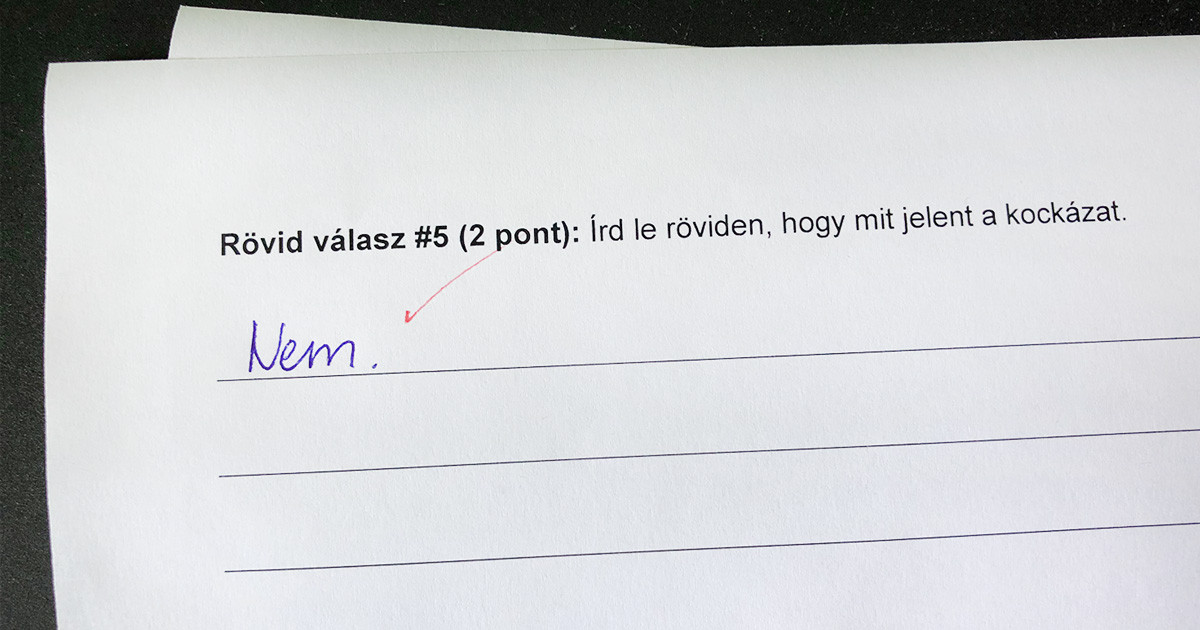 Rövid válasz #5 (2 pont): Írd le röviden, hogy mit jelent a kockázat.
Nem.